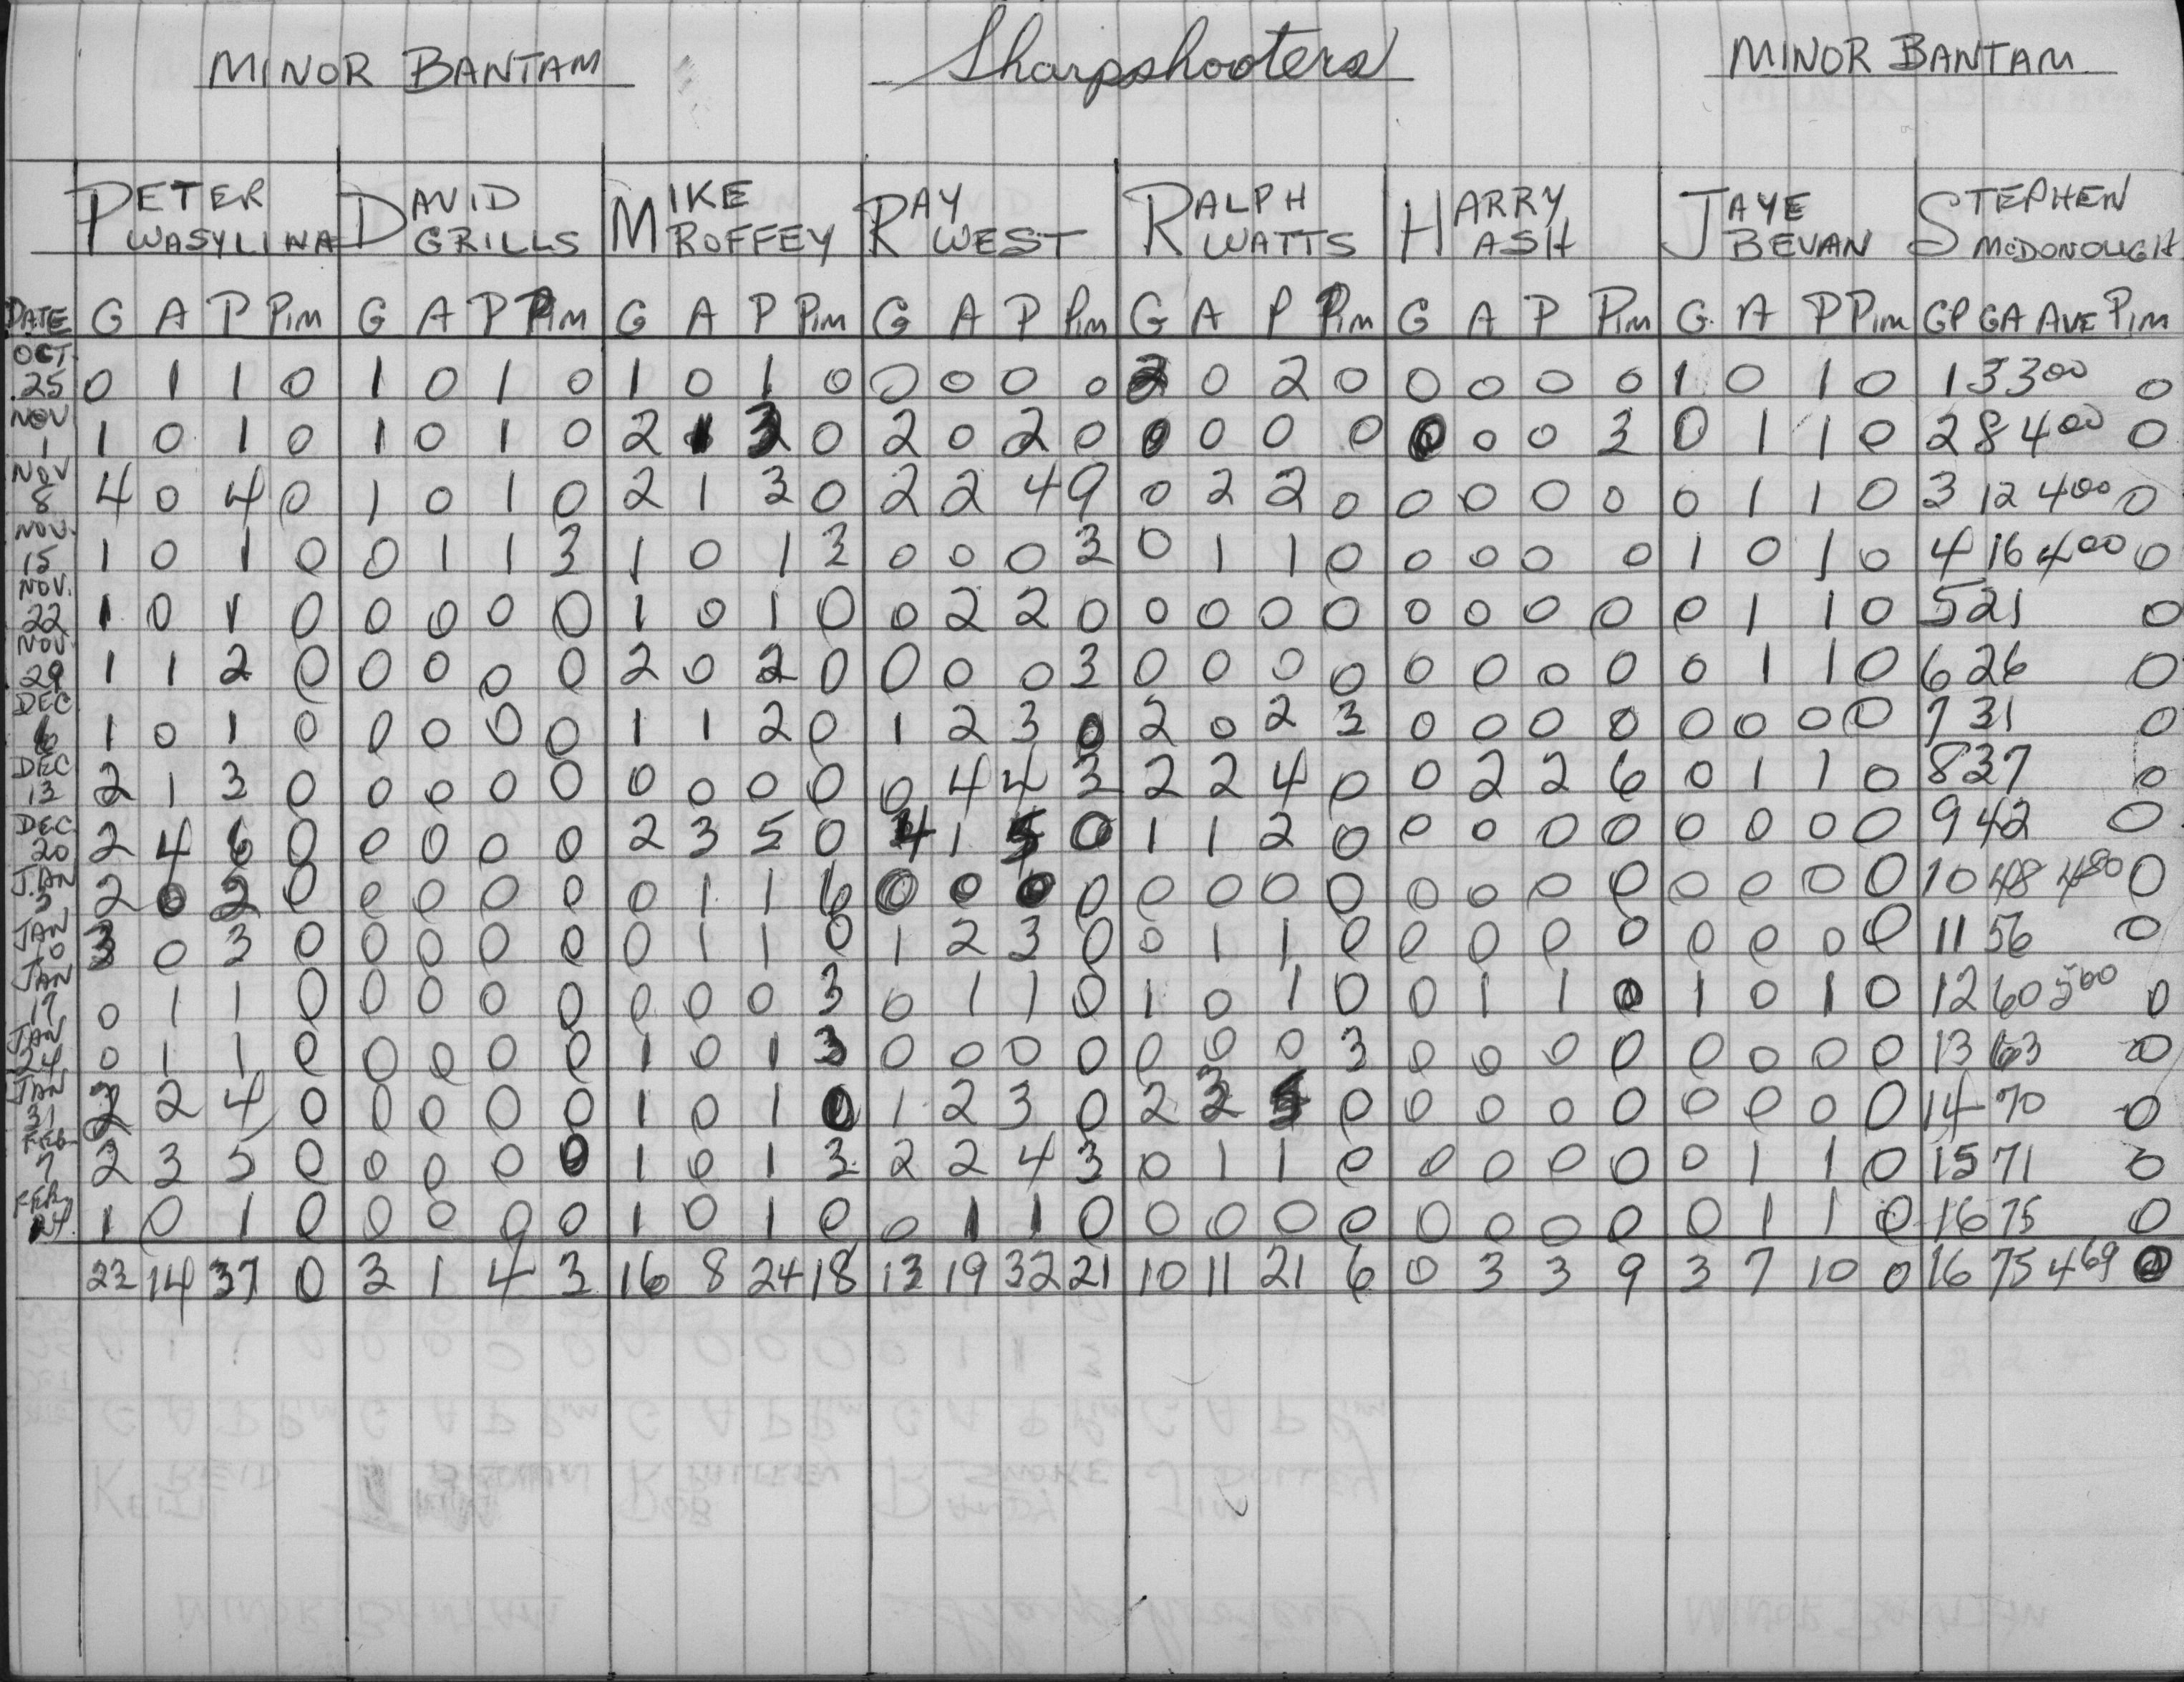 MINOR BANTAM Sharpshooters MINOR BANTAM
PETER WASYLINA DAVID GRILLS MIKE ROFFEY RAY WEST RALPH WATTS HARRY ASH JAYE BEVAN STEPHEN McDONOUGH
DATE G A P Pim G A P Pim G A P Pim G A P Pim G A P Pim G A P Pim G A P Pim GP GA AVE Pim
OCT. 25 0 1 1 0 1 0 1 0 1 0 1 0 0 0 0 0 2 0 2 0 0 0 0 0 1 0 1 0 1 3 3 00 0
NOV 1 1 0 1 0 1 0 1 0 2 1 3 0 2 0 2 0 0 0 0 0 0 0 0 3 0 1 1 0 2 8 4 00 0
NOV 8 4 0 4 0 1 0 1 0 2 1 3 0 2 2 4 9 0 2 2 0 0 0 0 0 0 1 1 0 3 12 4 00 0
NOV. 15 1 0 1 0 0 1 1 3 1 0 1 3 0 0 0 3 0 1 1 0 0 0 0 0 1 0 1 0 4 16 4 00 0
NOV. 22 1 0 1 0 0 0 0 0 1 0 1 0 0 2 2 0 0 0 0 0 0 0 0 0 0 1 1 0 5 21 0
NOV. 29 1 1 2 0 0 0 0 0 2 0 2 0 0 0 0 3 0 0 0 0 0 0 0 0 0 1 1 0 6 26 0
DEC 6 1 0 1 0 0 0 0 0 1 1 2 0 1 2 3 0 2 0 2 3 0 0 0 0 0 0 0 0 7 31 0
DEC 13 2 1 3 0 0 0 0 0 0 0 0 0 0 4 4 3 2 2 4 0 0 2 2 6 0 1 1 0 8 37 0
DEC. 20 2 4 6 0 0 0 0 0 2 3 5 0 4 1 5 0 1 1 2 0 0 0 0 0 0 0 0 0 9 42 0
JAN 3 2 0 2 0 0 0 0 0 0 1 1 6 0 0 0 0 0 0 0 0 0 0 0 0 0 0 0 0 10 48 4 80 0
JAN 10 3 0 3 0 0 0 0 0 0 1 1 0 1 2 3 0 0 1 1 0 0 0 0 0 0 0 0 0 11 56 0
JAN 17 0 1 1 0 0 0 0 0 0 0 0 3 0 1 1 0 1 0 1 0 0 1 1 0 1 0 1 0 12 60 5 00 0
JAN 24 0 1 1 0 0 0 0 0 1 0 1 3 0 0 0 0 0 0 0 3 0 0 0 0 0 0 0 0 13 63 0
JAN 31 2 2 4 0 0 0 0 0 1 0 1 0 1 2 3 0 2 3 5 0 0 0 0 0 0 0 0 0 14 70 0
FEB 7 2 3 5 0 0 0 0 0 1 0 1 3 2 2 4 3 0 1 1 0 0 0 0 0 0 1 1 0 15 71 0
FEB. 14 1 0 1 0 0 0 0 0 1 0 1 0 0 1 1 0 0 0 0 0 0 0 0 0 0 1 1 0 16 75 0
23 14 37 0 3 1 4 3 16 8 24 18 13 19 32 21 10 11 21 6 0 3 3 9 3 7 10 0 16 75 4 69 0